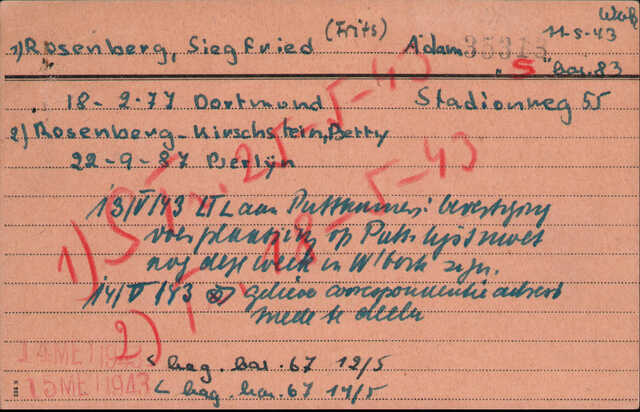 Weib
1) Rosenberg, Siegfried (Frits) Adam 35313 11-5-43
"S" bar. 83
18-2-77 Dortmund Stadionweg 55
2) Rosenberg-Kirschstein, Betty
22-9-87 Berlijn
1) St. 25-5-43
13/V/43 LTL aan Puttkammer: bevestiging
voor plaatsing op Putt. lijst moet
nog deze week in W'bork zijn.
14/V/43 gelieve correspondentie adres
mede te delen
2) 18-5-43
14 MEI 1943 < bag. bar. 67 12/5
15 MEI 1943 < bag. bar. 67 14/5